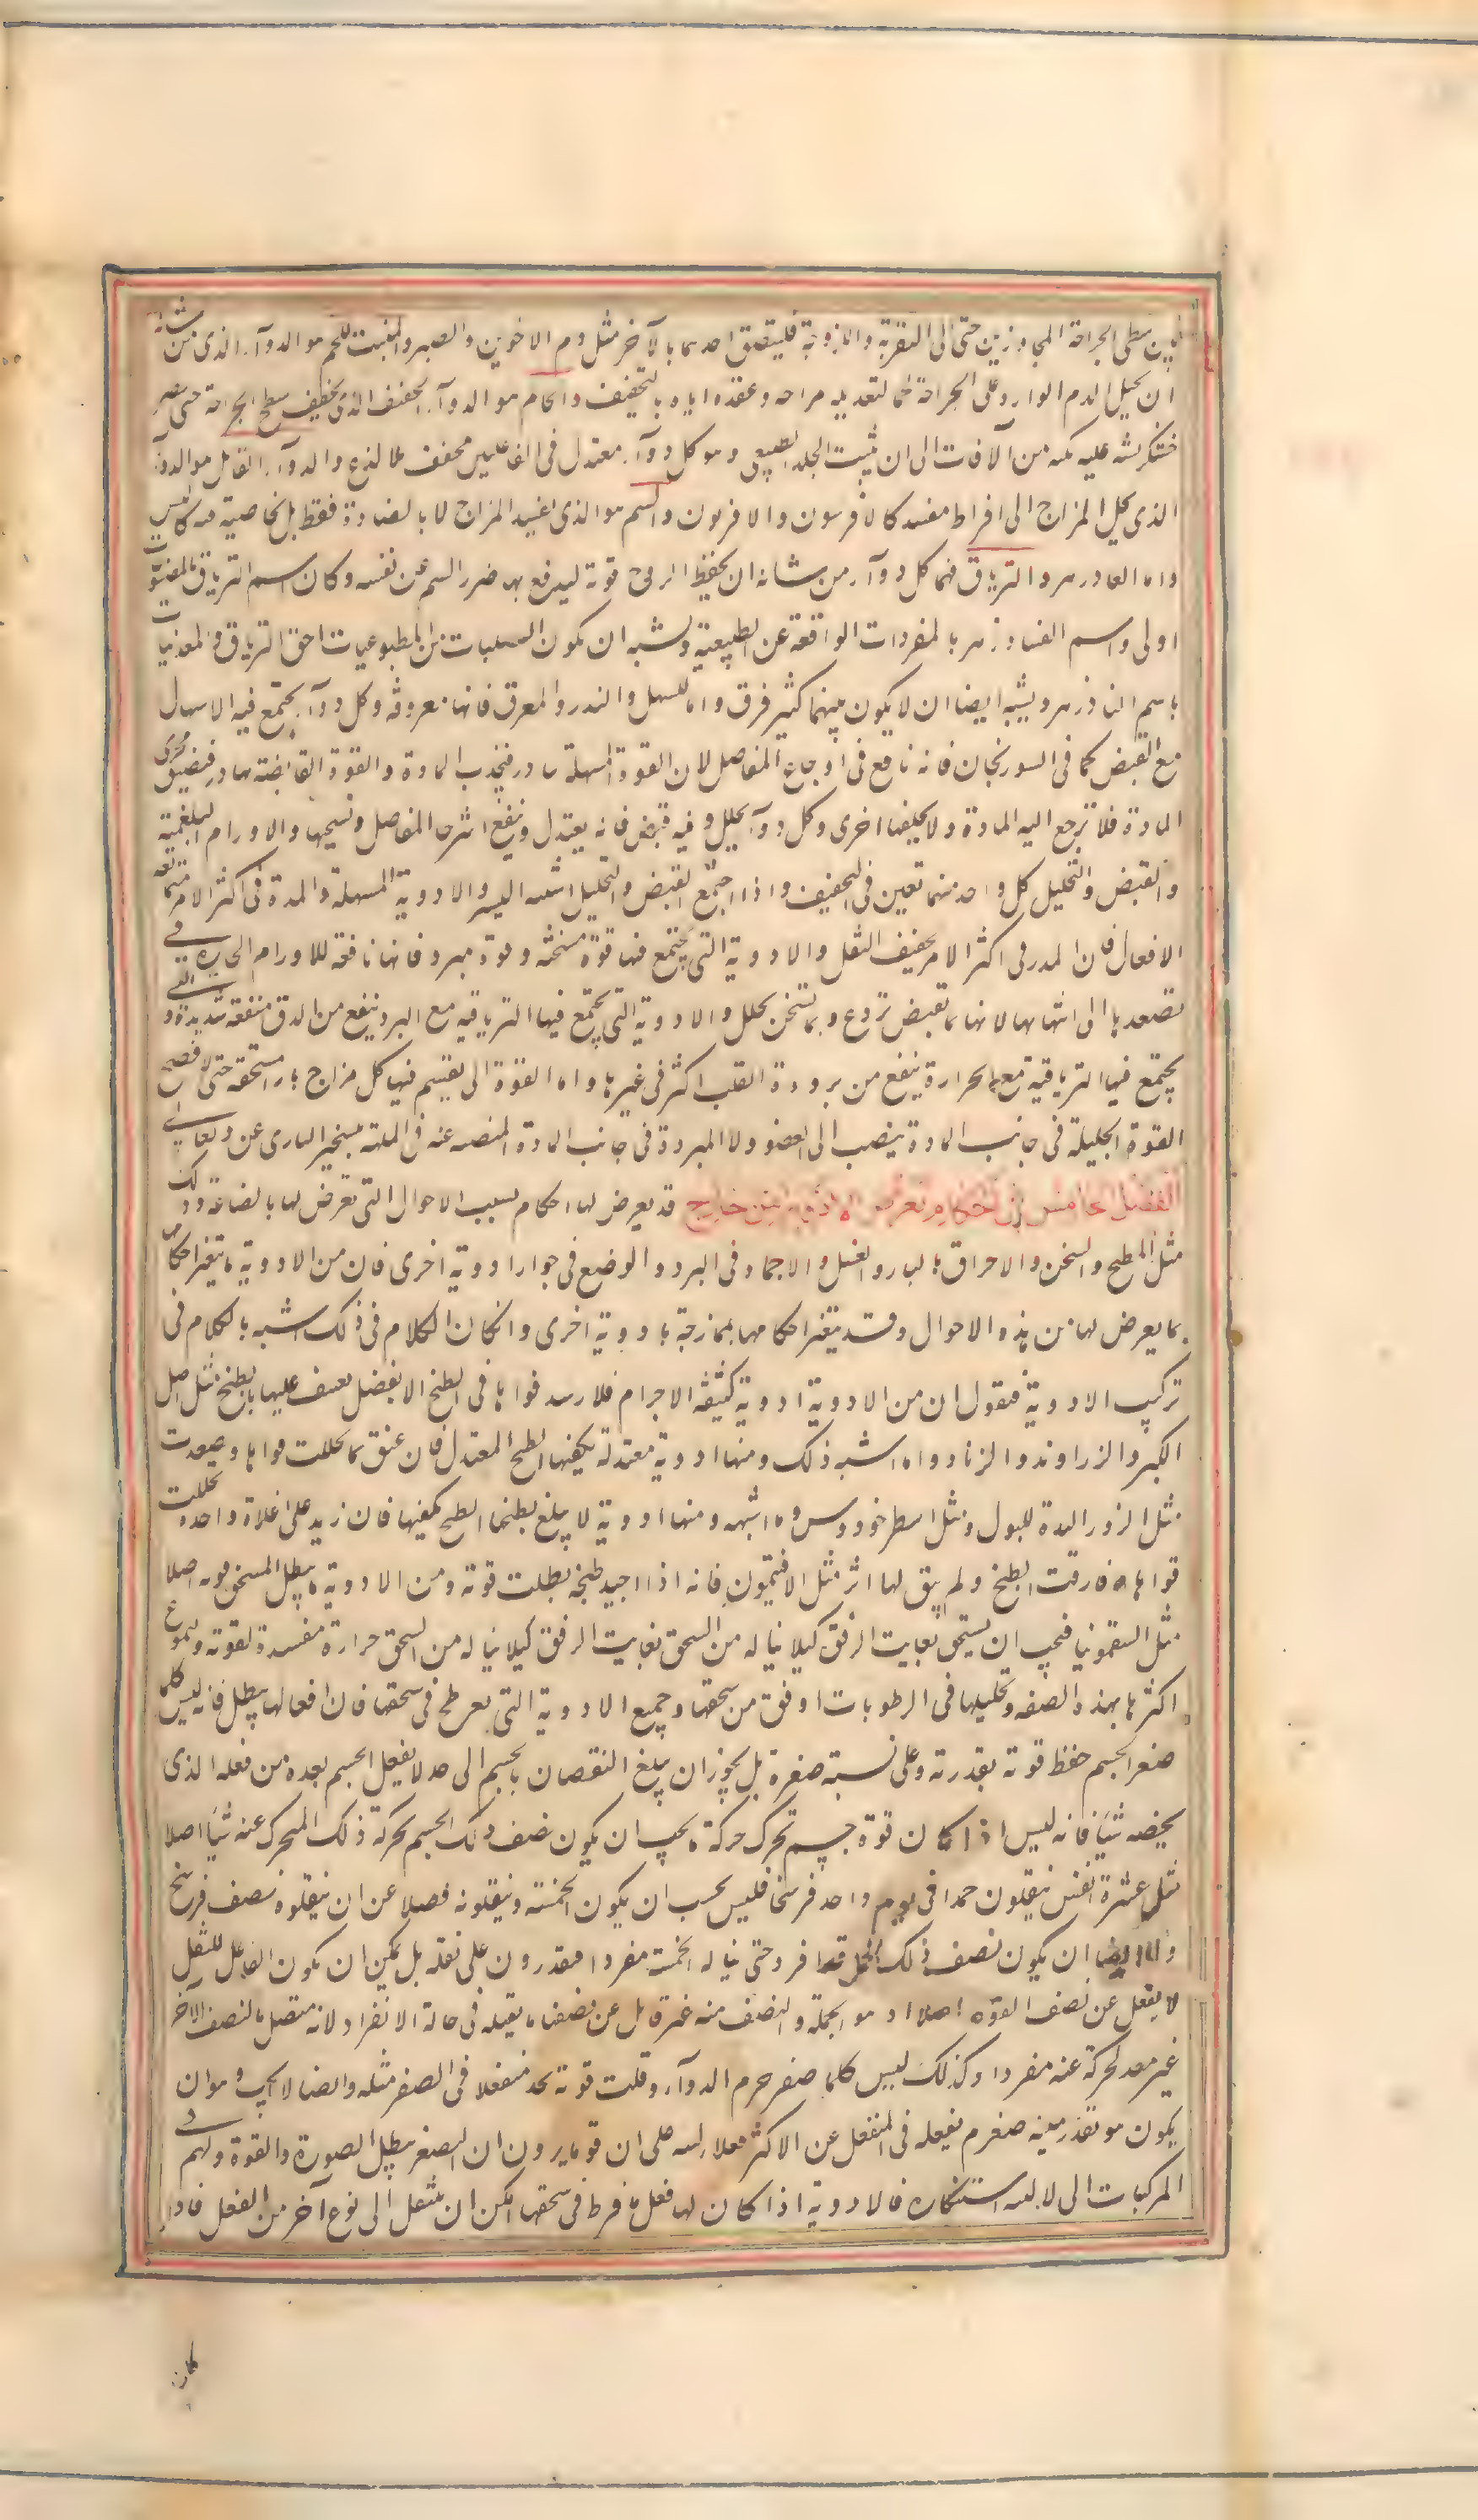 بين سطحى الجراحة المجاورين حتى الى التغرية واللزوجة فليتصق احدهما بالآخر مثل دم الاخوين والصبر والمنبت للحم هو الدوآء الذى من شانه
ان يحيل الدم الوارد على الجراحة لحما لتعديله مزاجه وعقده اياه بالتجفيف والخاتم هو الدوآء المجفف الذى يجفف سطح الجراحة حتى يصير
خشكريشة عليه تكنه من الآفات الى ان ينبت الجلد الطبيعى وهو كل دوآء معتدل فى الفاعلين مجفف بلا لذع والدوآء القاتل هو الدوآء
الذى يحيل المزاج الى افراط مفسد كالافرسون والافيون والسم هو الذى يفسد المزاج لا بالمضادة فقط بل بخاصية فيه كالبيش
واما الفادزهر والترياق فهما كل دوآء من شانه ان يحفظ الروح قوته ليدفع بها ضرر السم عن نفسه وكان اسم الترياق بالمصنوعات
اولى واسم الفادزهر بالمفردات الواقعة عن الطبيعة ويشبه ان يكون النباتيات من المطبوعيات احق بالترياق والمعدنيات
باسم الفادزهر ويشبه ايضا ان لا يكون بينهما كثير فرق واما المسهل والمدر والمعرق فانها معروفة وكل دوآء يجتمع فيه الاسهال
مع القبض كما فى السورنجان فانه نافع فى اوجاع المفاصل لان القوة المسهلة تبادر فتجذب المادة والقوة القابضة تبادر فتضيق مجرى
المادة فلا ترجع اليه المادة ولا يخلفها اخرى وكل دوآء يحلل وفيه قبض فانه يعتدل وينفع استرخاء المفاصل وتشنجها والاورام البلغمية
والقبض والتحليل كل واحد منهما تعين فى التجفيف واذا اجتمع القبض والتحليل اشتد اليبس والادوية المسهلة والمدرة فى اكثر الامر متمانعة
الافعال فان المدر فى اكثر الامر يجفف الثفل والادوية التى يجتمع فيها قوة مسخنة وقوة مبردة فانها نافعة للاورام الحارة فى
تصعدها الى انتهائها لانها بما تقبض تردع وبما تسخن تحلل والادوية التى يجتمع فيها الترياقية مع البرد ينفع من الدق منفعة شديدة والتى
يجتمع فيها الترياقية مع الحرارة ينفع من برودة القلب اكثر من غيرها واما القوة التى تقسم فيها كل مزاج بازاء مستحقه حتى لا تضع
القوة المحللة فى جانب المادة ينصب الى العضو ولا المبردة فى جانب المادة المنصبة عنه فى الملهمة بتسخير البارى عز وتعالى
الفصل الخامس فى احكام تعرض للادوية من خارج قد يعرض لها احكام بسبب الاحوال التى تعرض لها بالصناعة وذلك
مثل الطبخ والسحق والاحراق بالنار والغسل والاجماد فى البرد والوضع فى جوار ادوية اخرى فان من الادوية ما يتغير احكامها
بما يعرض لها من هذه الاحوال وقد يتغير احكامها بممازجة بادوية اخرى وان كان الكلام فى ذلك اشبه بالكلام فى
تركيب الادوية فنقول ان من الادوية ادوية كثيفة الاجرام فلا يرسل قواها فى الطبخ الا بفضل تعنيف عليها بالطبخ مثل اصل
الكبر والزراوند والزرنباد وما اشبه ذلك ومنها ادوية معتدلة يكفيها الطبخ المعتدل فان عنف بها تحللت قواها وصعدت
مثل البزور المدرة للبول ومثل اسطوخودوس وما اشبهه ومنها ادوية لا يبلغ بطبخها الطبخ يكفيها فان زيد على اغلاءة واحدة تحللت
قواها وفارقت بالطبخ ولم يبق لها اثر مثل الافتيمون فانه اذا اجيد طبخه بطلت قوته ومن الادوية ما يبطل السحق قوته اصلا
مثل السقمونيا فيجب ان يسحق بغاية الرفق كيلا يناله من السحق بغاية الرفق كيلا يناله من السحق حرارة مفسدة لقوته والصموغ
اكثرها بهذه الصفة وتحليلها فى الرطوبات اوفق من سحقها وجميع الادوية التى يفرط فى سحقها فان افعالها يبطل فانه ليس كلما
صغر الجسم حفظ قوته بقدرته وعلى نسبة صغره بل يجوز ان يبلغ النقصان بالجسم الى حد لا يفعل الجسم بعده من فعله الذى
يخصه شيئا فانه ليس اذا كان قوة جسم تحرك حركة ما يجب ان يكون نصف ذلك الجسم يحركه ذلك المتحرك عنه شيئا اصلا
مثل عشرة انفس ينقلون حملا فى يوم واحد فرسخا فليس يجب ان يكون الخمسة ينقلونه فضلا عن ان ينقلوه نصف فرسخ
ولا ايضا ان يكون نصف ذلك الحمل قد افرد حتى يناله الخمسة مفردا فيقدرون على نقله بل يمكن ان يكون القابل للنقل
لا يفعل عن نصف القوة اصلا اذ هو الجملة والنصف منه غير قابل عن نصفها ما يقبله فى حالة الانفراد لانه متصل بالنصف الآخر
غير معد لحركة عنه مفردا وكذلك ليس كلما صغر جرم الدوآء وقلت قوته تجد منفعلا فى الصغر مثله وايضا لا يجب وهو ان
يكون هو بقدر صغره يفعله فى المنفعل عن الاكثر فعلا على ان قوما يرون ان الصغر يبطل الصورة والقوة وله فى
المركبات الى استنكاره فالادوية اذا كان لها فعل فافرط فى سحقها امكن ان ينتقل الى نوع آخر من الفعل فاذا
كان